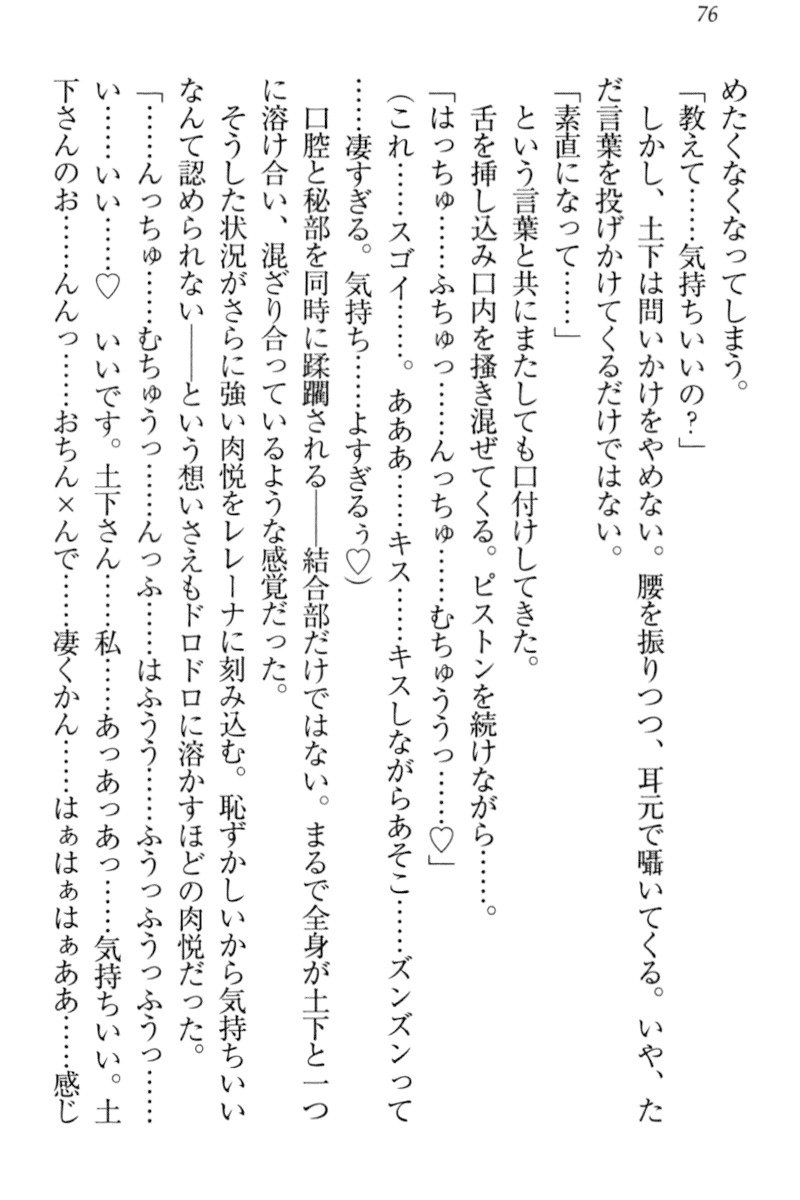 76
めたくなくなってしまう。
「教えて……気持ちいいの?」
しかし、土下は問いかけをやめない。腰を振りつつ、耳元で囁いてくる。いや、た
だ言葉を投げかけてくるだけではない。
「素直になって……」
という言葉と共にまたしても口付けしてきた。
舌を挿し込み口内を掻き混ぜてくる。ピストンを続けながら……。
「はっちゅ……ふちゅっ……んっちゅ……むちゅううっ……♡」
(これ……スゴイ……。あああ……キス……キスしながらあそこ……ズンズンって
……凄すぎる。気持ち……よすぎるぅ♡)
口腔と秘部を同時に蹂躙される――結合部だけではない。まるで全身が土下と一つ
に溶け合い、混ざり合っているような感覚だった。
そうした状況がさらに強い肉悦をレレーナに刻み込む。恥ずかしいから気持ちいい
なんて認められない――という想いさえもドロドロに溶かすほどの肉悦だった。
「……んっちゅ……むちゅうっ……んっふ……はふうう……ふうっふうっふうっ……
い……いい……♡　いいです。土下さん……私……あっあっあっ……気持ちいい。土
下さんのお……んんっ……おちん×んで……凄くかん……はぁはぁはぁああ……感じ